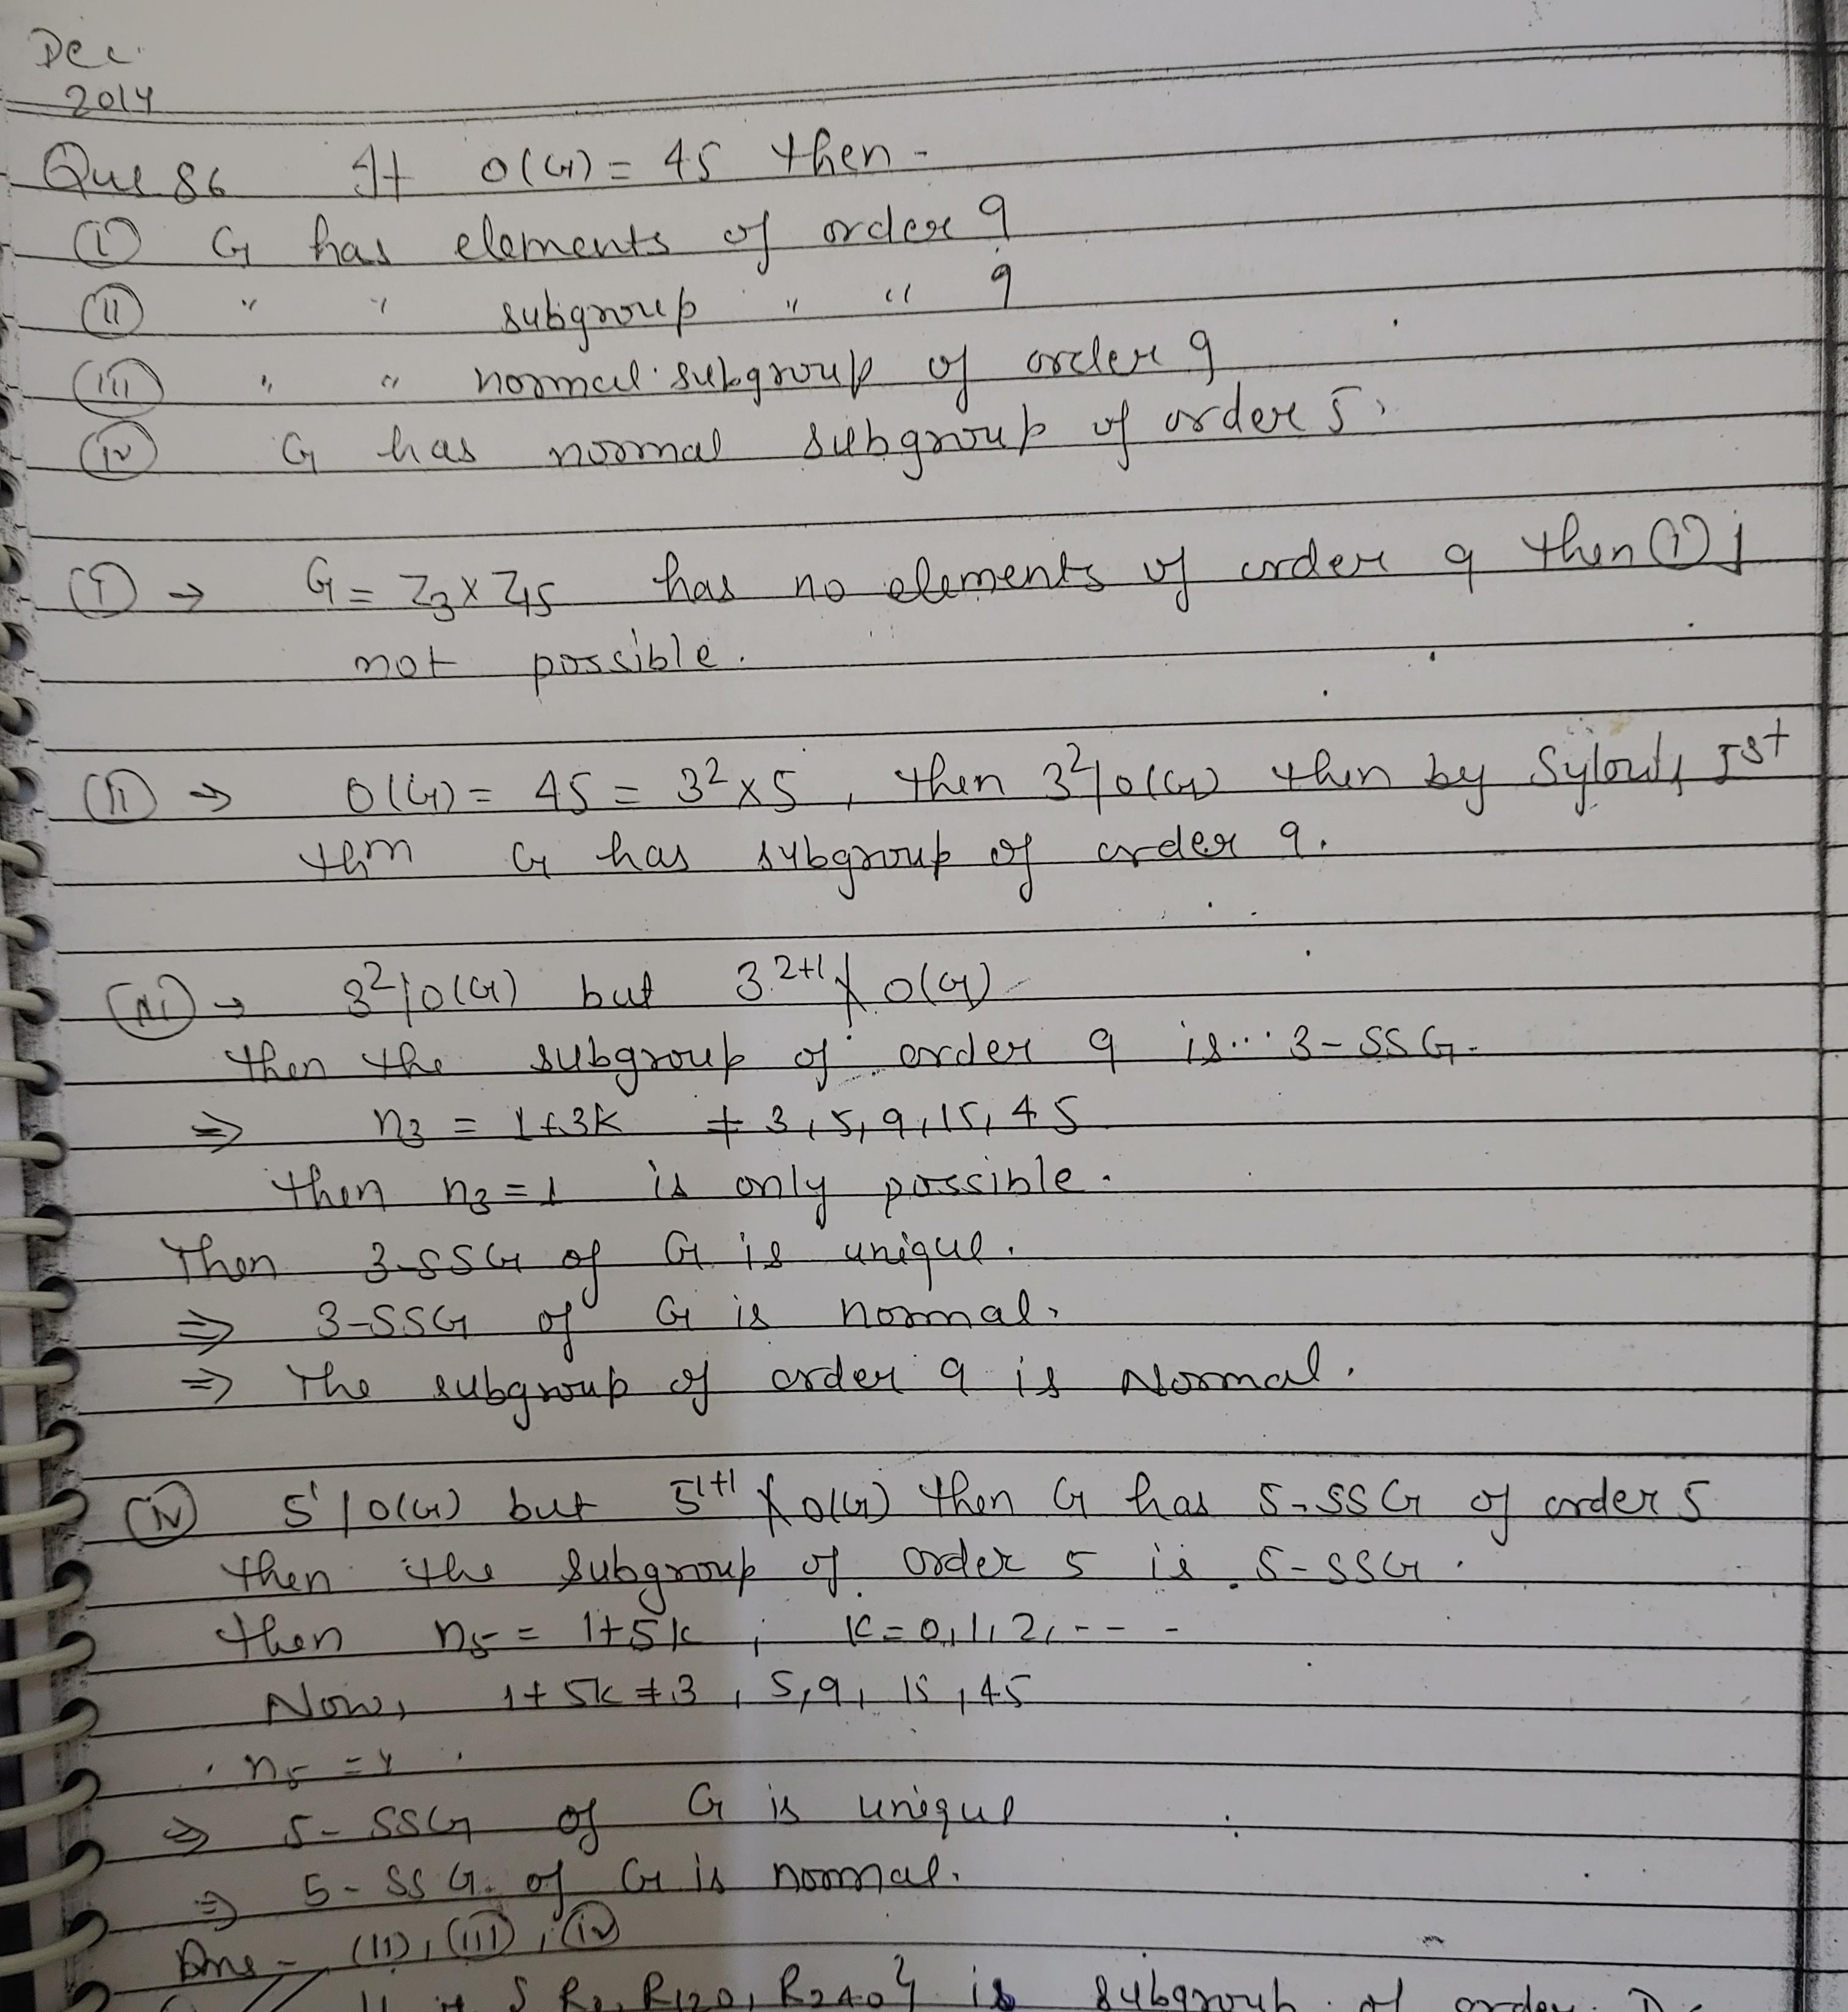 Dec.
2014
Que 86 If O(G) = 45 then -
(i) G has elements of order 9
(ii) " " subgroup " " 9
(iii) " " normal subgroup of order 9
(iv) G has normal subgroup of order 5.
(i) → G = Z3 × Z15 has no elements of order 9 then (i) is
not possible.
(ii) → O(G) = 45 = 3² × 5, then 3²/O(G) then by Sylow's Ist
thm G has subgroup of order 9.
(iii) → 3²/O(G) but 3²⁺¹ ∤ O(G)
then the subgroup of order 9 is 3-SSG.
⇒ n3 = 1+3k ≠ 3, 5, 9, 15, 45
then n3 = 1 is only possible.
Then 3-SSG of G is unique.
⇒ 3-SSG of G is normal.
⇒ The subgroup of order 9 is Normal.
(iv) 5¹/O(G) but 5¹⁺¹ ∤ O(G) then G has 5-SSG of order 5
then the subgroup of order 5 is 5-SSG.
then n5 = 1+5k, k = 0, 1, 2, - - -
Now, 1+5k ≠ 3, 5, 9, 15, 45
n5 = 1
⇒ 5-SSG of G is unique
⇒ 5-SSG of G is normal.
Ans - (ii), (iii), (iv)
R120, R240} is subgroup of order